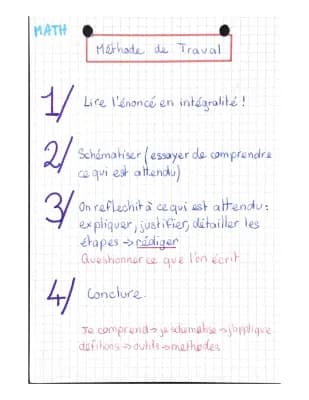 MATH
Méthode de Traval
1/ Lire l'énoncé en intégralité !
2/ Schématiser (essayer de comprendre
ce qui est attendu)
3/ On reflechit à ce qui est attendu :
expliquer, justifier, détailler les
étapes → rédiger
Questionner ce que l'on écrit
4/ Conclure.
Je comprend → je schématise → j'applique
défitions → outils → methodes